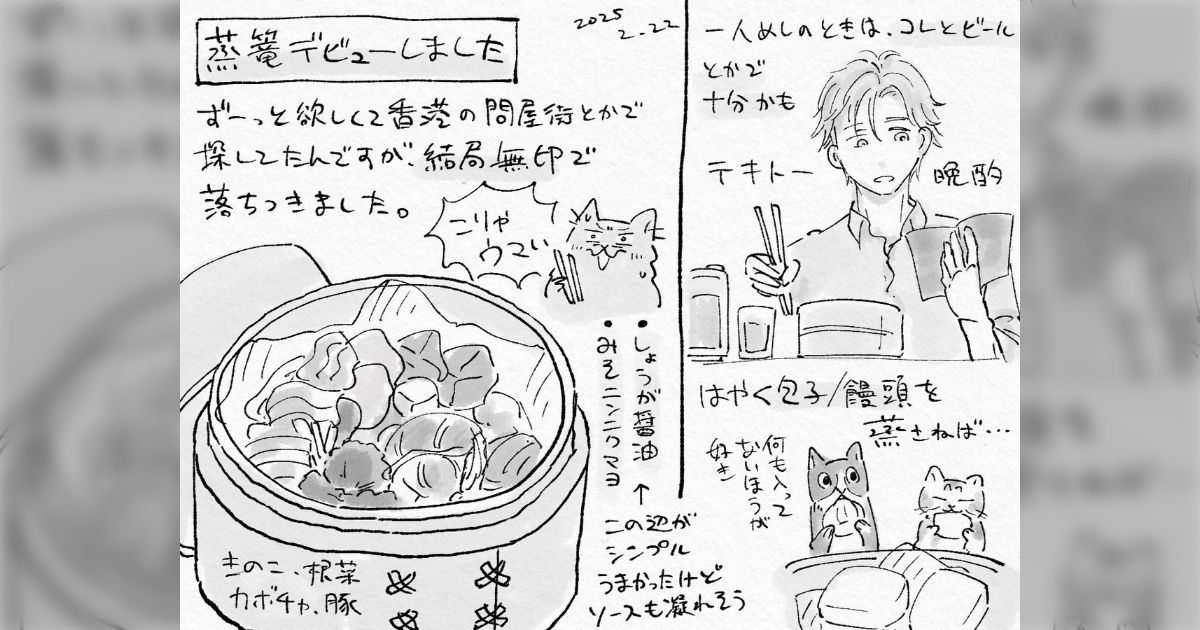 2025
2.22
蒸篭デビューしました
ずーっと欲しくて香港の問屋街とかで
探してたんですが、結局無印で
落ちつきました。
こりゃ
ウマい
・しょうが醤油
・みそニンニクマヨ
↑
この辺が
シンプル
うまかったけど
ソースも凝れそう
きのこ、根菜
カボチャ、豚
一人めしのときは、コレとビール
とかで
十分かも
テキトー
晩酌
はやく包子/饅頭を
蒸さねば…
何も入って
ないほうが
好き